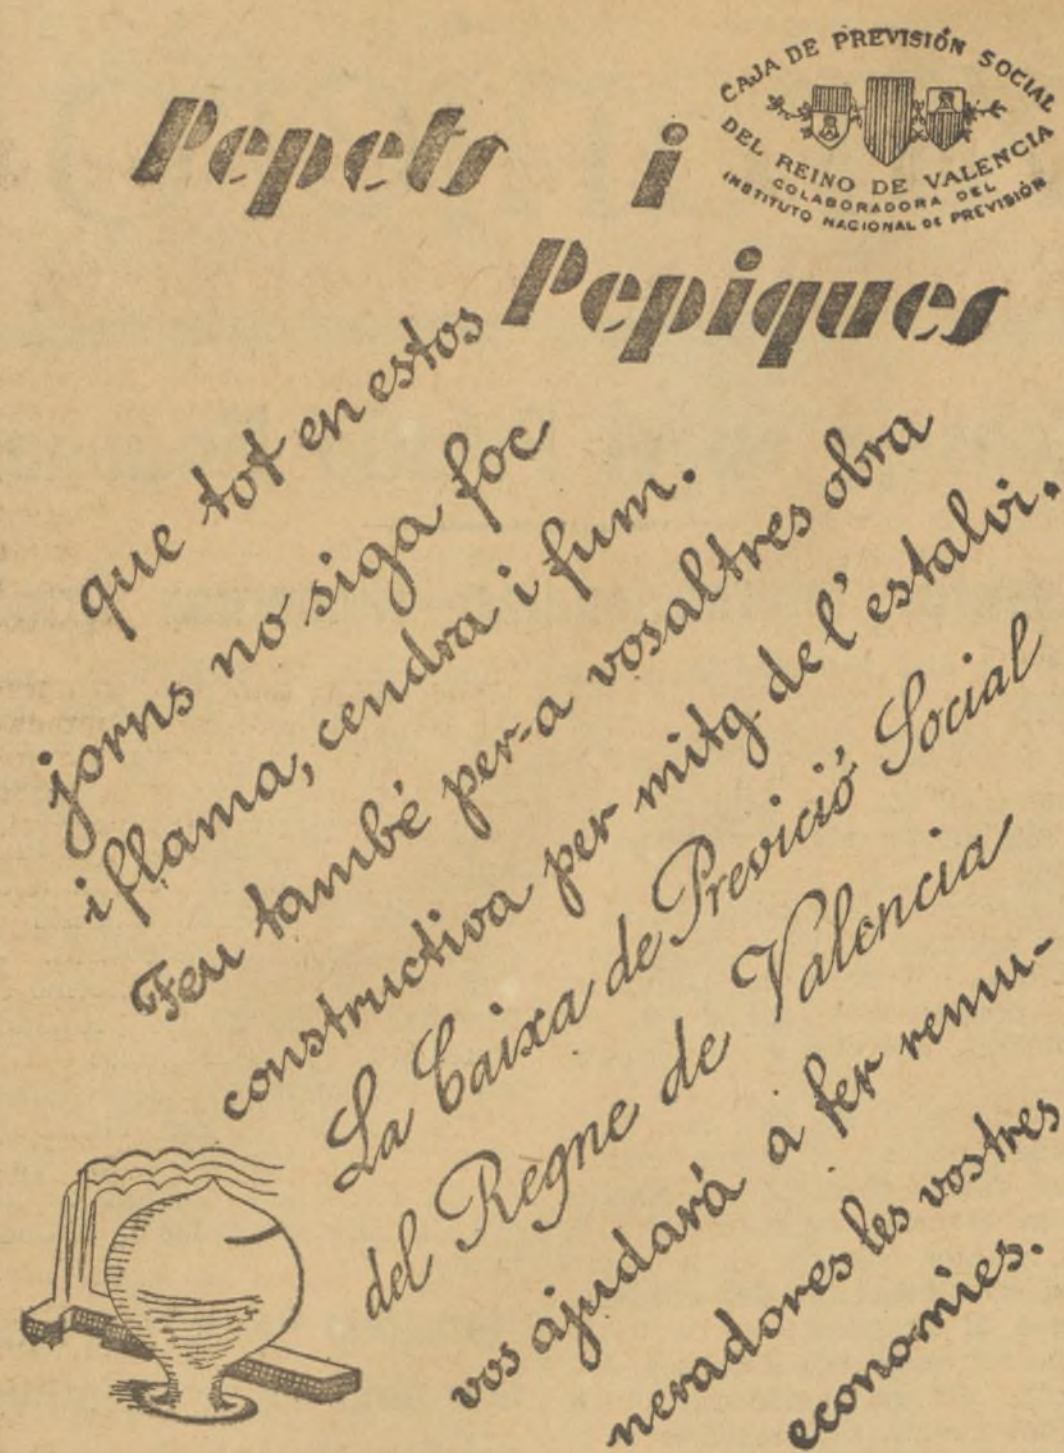 Pepets i
CAJA DE PREVISIÓN SOCIAL
DEL REINO DE VALENCIA
COLABORADORA DEL
INSTITUTO NACIONAL DE PREVISIÓN
Pepiques
que tot en estos
jorns no siga foc
i flama, cendra i fum.
Feu també per-a vosaltres obra
constructiva per mitg de l'estalvi.
La Caixa de Previció Social
del Regne de Valencia
vos ajudará a fer remu-
neradores les vostres
economies.